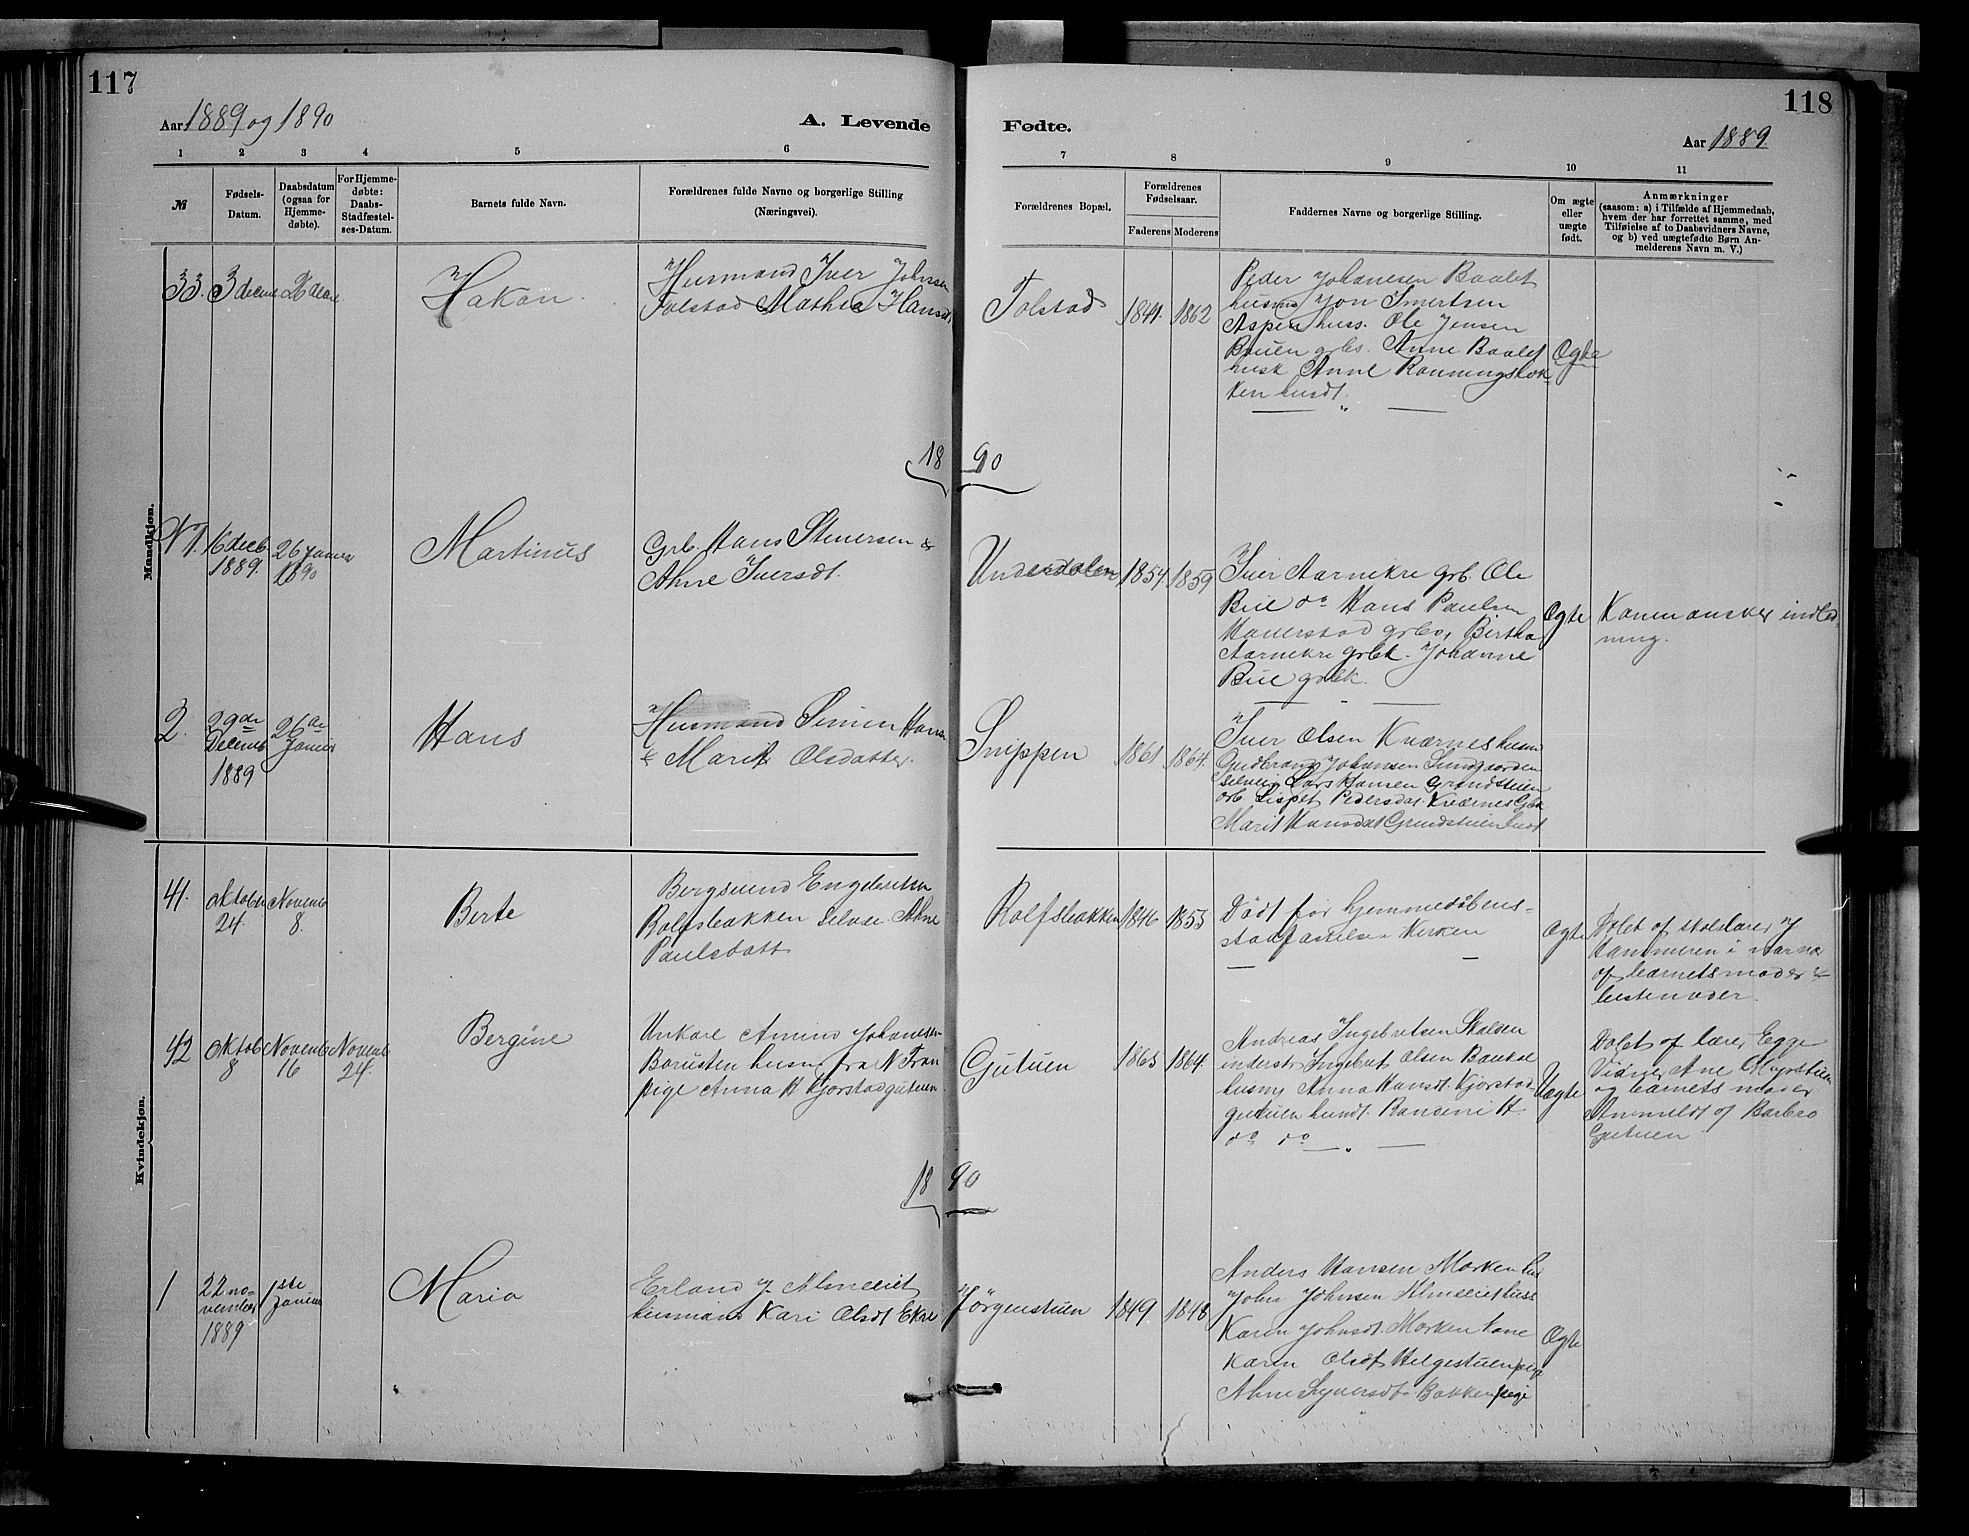 117
118
Aar 1889 og 1890
A. Levende Fødte.
Aar 1889.
1 2 3 4 5 6 7 8 9 10 11
№
Fødsels-Datum.
Daabsdatum (ogsaa for Hjemme-døbte).
For Hjemme-døbte: Daabs-Stadfæstel-ses-Datum.
Barnets fulde Navn.
Forældrenes fulde Navne og borgerlige Stilling
(Næringsvei).
Forældrenes Bopæl.
Forældrenes Fødselsaar.
Faderens Moderens
Faddernes Navne og borgerlige Stilling.
Om ægte eller uægte født.
Anmærkninger
(saasom: a) i Tilfælde af Hjemmedaab,
hvem der har forrettet samme, med
Tilføielse af to Daabsvidners Navne,
og b) ved uægtefødte Børn An-
melderens Navn m. V.)
Mandkjøn.
33. 3 decmb 26 decm
Hakon
Husmand Iver Johnsen
Tolstad Mathea Hansdt
Tolstad 1841. 1862
Peder Johanesen Baalet
husm Jon Smertsen
Aspen huss. Ole Jensen
Bruen grbs. Anne Baalet
husk Anne Rønningslok
ken husdt.
Ægte
1890
N 1. 16 decb. 1889. 26 Januar 1890
Martinus
Grb. Hans Stenersen &
Ahne Iversdt.
Underdalen 1854. 1859
Iver Aarnekre grb. Ole
Bue do Hans Paulsen
Haverstad grbs, Birtha
Aarnekre grbk. Johanne
Bue grbk.
Ægte
Konen ønsker indled
ning.
2. 29de Decemb 1889 26de Januar
Hans
Husmand Simen Hansen
& Marit Olsdatter.
Snippen 1861 1864.
Iver Olsen Kværnes husm
Gudbrand Johansen Sungaarden
selveig Lars Hansen Grundstuen
grb. Lispet Pedersdat Kværnes Gbk
Marit Hansdat Grundstuen
Kvindekjøn.
41. Oktober 24. Novemb 8.
Berte
Bergsvend Engebretsen
Rolfsbakken selvei. Ahne
Paulsdatt
Rolfsbakken 1846 1855
Død før hjemmedåbens-
stadfæstelse i Kirken
Ægte
Døbt af skolelærer J
Hammeren i nærvær
af barnets moder &
bestemoder.
42 Oktob 8 Novemb 16 Novemb 24.
Bergine
Unkarl Amund Johanesen
Borusten husm fra N Fron
pige Anna H Kjorstadgutuen
Gutuen 1865 1864.
Andreas Ingebretsen Skalsen
inderst Ingebret Olsen Baukol
husmd Anna Hansdt. Kjorstad-
gutuen husdt. Randine H
do do
Uægte
Døbt af lærer Egge
Vidner Ane Myrstuen
og barnets moder
Anmeldt af Barbro
Gutuen
1890
1 22 no-vember 1889 1ste Januar
Maria
Erland J. Almeliet
husmand Kari Olsdt Ekre
Jørgenstuen 1849. 1848
Anders Hansen Morken hus
John Johnsen Almeliet huss
Karen Johnsdt. Morken kone
Karen Olsdt Helgestuen pige
Ahne Syversdt. Bakken pige
Ægte